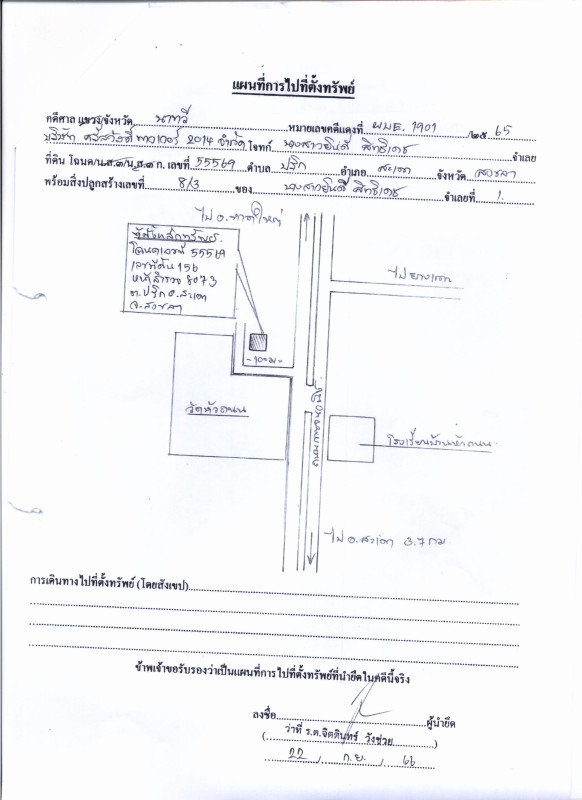 แผนที่การไปที่ตั้งทรัพย์
คดีศาล แขวง/จังหวัด นาทวี หมายเลขคดีแดงที่ ผบE. 1901 /๒๕ 65
บริษัท ศรีสวัสดิ์ พาวเวอร์ 2014 จำกัด โจทก์ นางสาวยินดี สิทธิเดช จำเลย
ที่ดิน โฉนด/น.ส.๓/น.ส.๓ ก. เลขที่ 55569 ตำบล ปริก อำเภอ สะเดา จังหวัด สงขลา
พร้อมสิ่งปลูกสร้างเลขที่ 8/3 ของ นางสาวยินดี สิทธิเดช จำเลยที่ 1.
ไป อ.หาดใหญ่
ที่ตั้งหลักทรัพย์
โฉนดเลขที่ 55569
เลขที่ดิน 156
หน้าสำรวจ 8073
ต.ปริก อ.สะเดา
จ.สงขลา
ไปยางเกาะ
วัดหัวถนน
โรงเรียนบ้านหัวถนน
ไป อ.สะเดา 3.7 กม
การเดินทางไปที่ตั้งทรัพย์ (โดยสังเขป)
ข้าพเจ้าขอรับรองว่าเป็นแผนที่การไปที่ตั้งทรัพย์ที่นำยึดในคดีนี้จริง
ลงชื่อ ผู้นำยึด
( ว่าที่ ร.ต.จิตตินทร์ วังช่วย )
22 / ก.ย. / 66